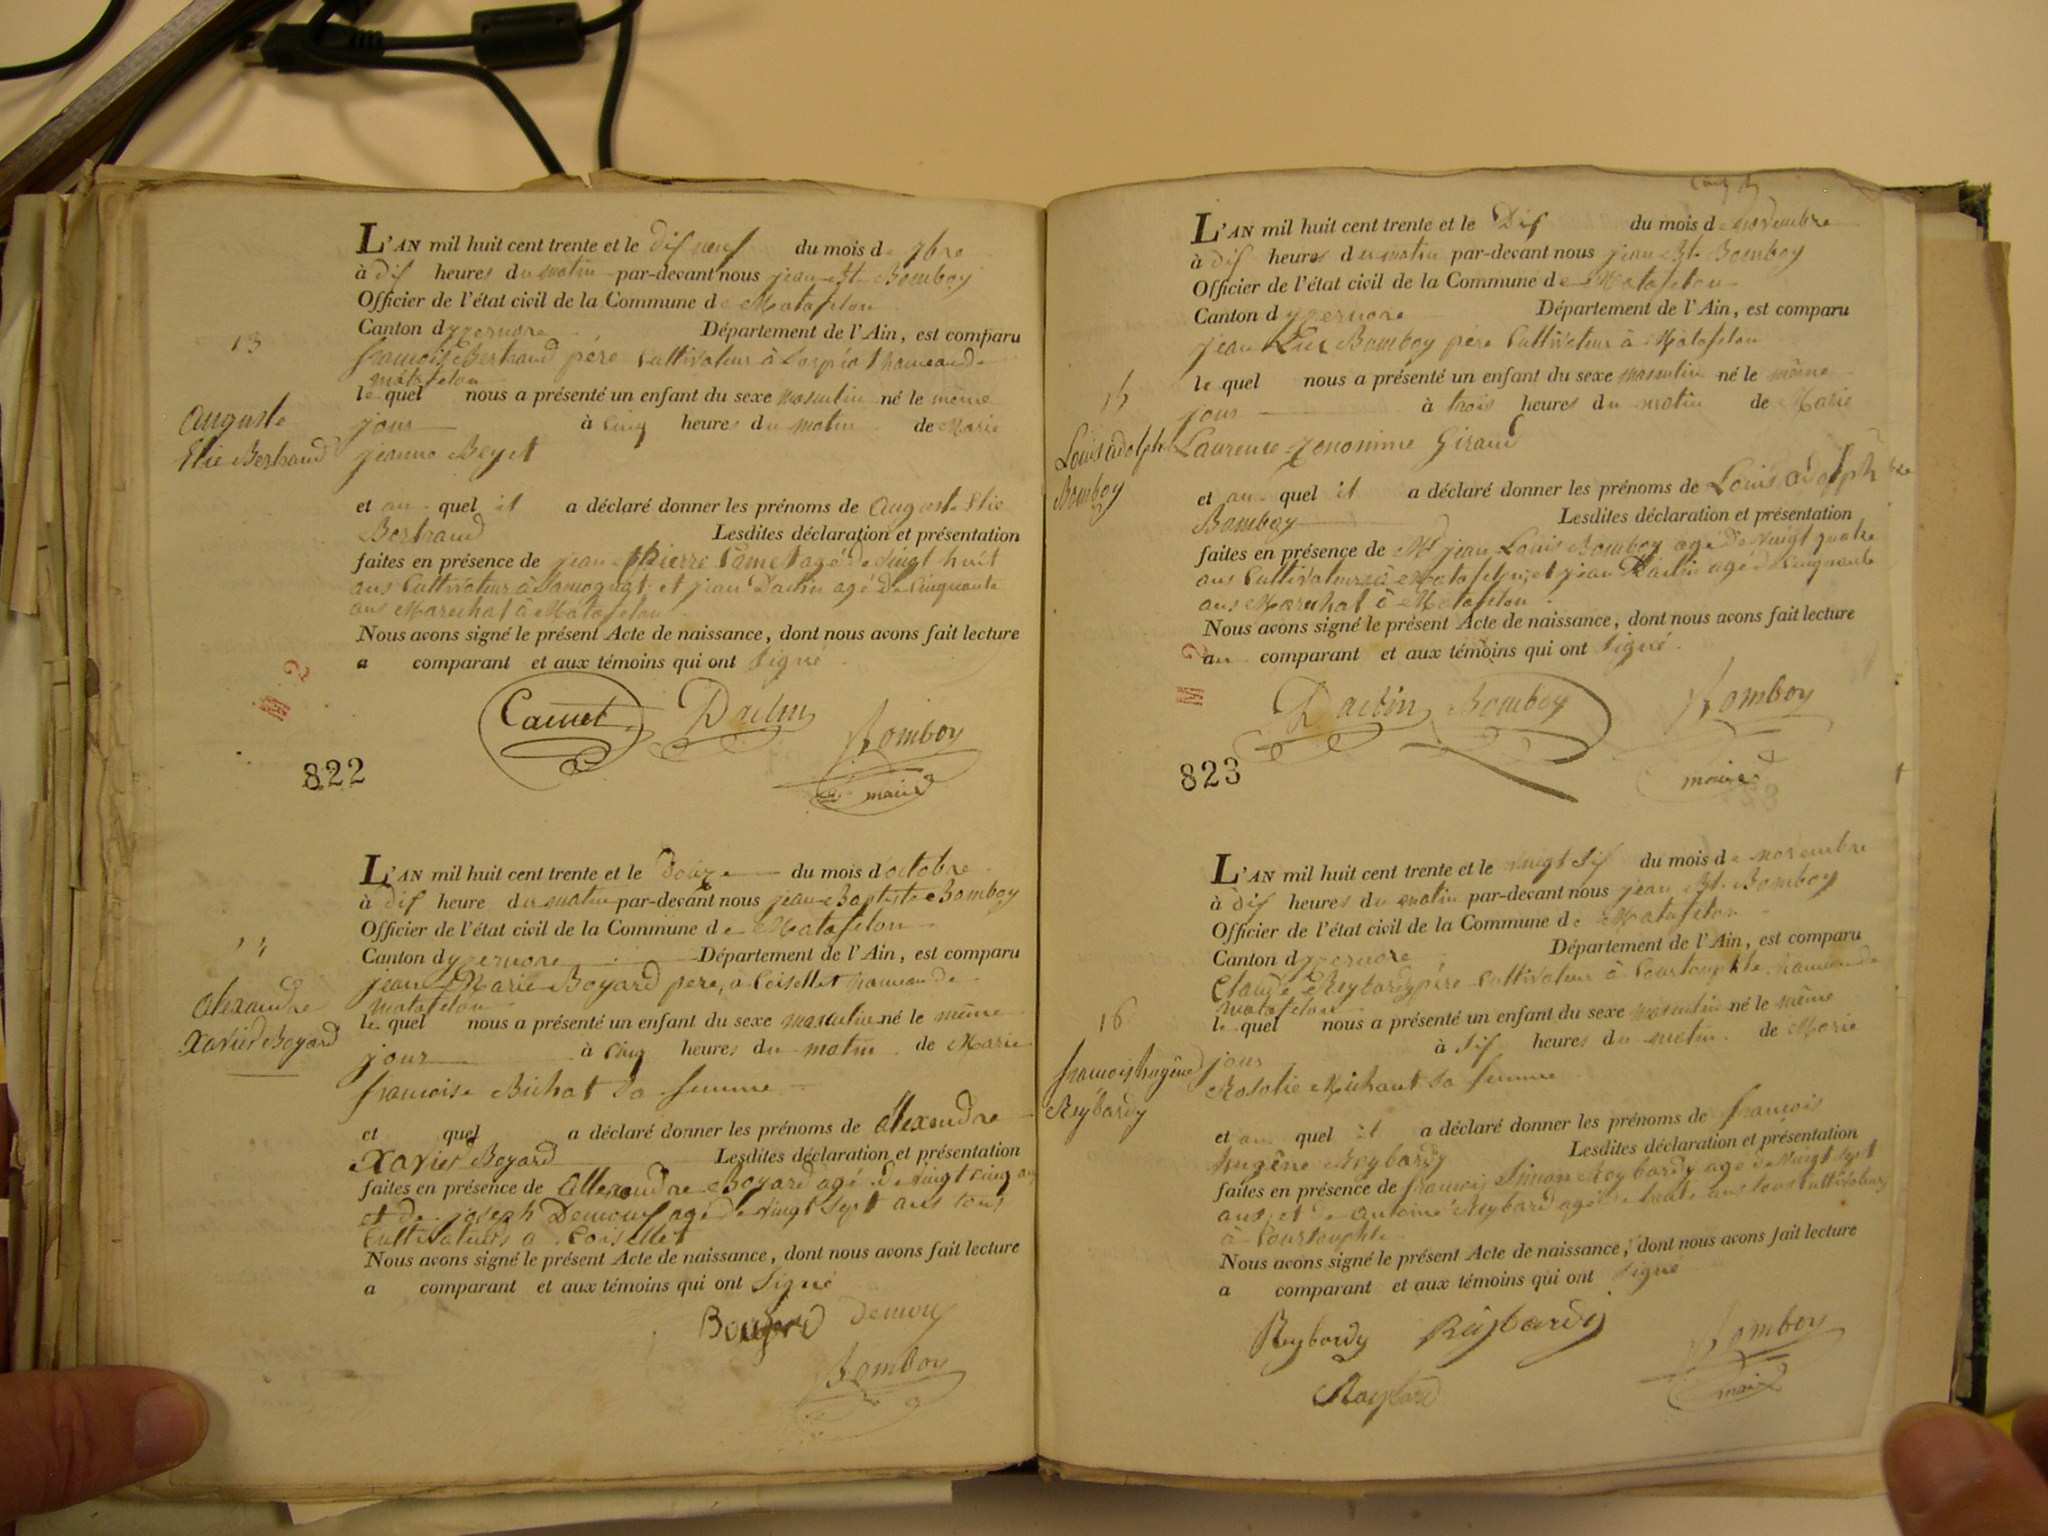 13
Auguste
Elie Bertrand
L'AN mil huit cent trente et le dix neuf du mois de 7bre
à dix heures du matin par-devant nous jean Bt. Bomboy
Officier de l'état civil de la Commune de Matafelon
Canton dyzernore Département de l'Ain, est comparu
françois Bertrand père Cultivateur à hameau de
matafelon
le quel nous a présenté un enfant du sexe masculin né le même
jour à cinq heures du matin de Marie
jeanne Beyet
et au quel il a déclaré donner les prénoms de Auguste Elie
Bertrand Lesdites déclaration et présentation
faites en présence de jean Pierre Camet agé de vingt huit
ans Cultivateur à Samognat et jean Daubin agé de Cinquante
ans Marechal à Matafelon
Nous avons signé le présent Acte de naissance, dont nous avons fait lecture
a comparant et aux témoins qui ont Signé
Camet Daubin Bomboy
maire
822
14
Alexandre
Xavier Boyard
L'AN mil huit cent trente et le Douze du mois d'octobre
à dix heure du matin par-devant nous jean Baptiste Bomboy
Officier de l'état civil de la Commune de Matafelon
Canton dyzernore Département de l'Ain, est comparu
jean Marie Boyard pere, à Coisellet hameau de
matafelon
le quel nous a présenté un enfant du sexe masculin né le même
jour à cinq heures du matin de Marie
francoise Bichat sa femme
et quel a déclaré donner les prénoms de Alexandre
Xavier Boyard Lesdites déclaration et présentation
faites en présence de Allexandre Boyard agé de vingt cinq ans
et de joseph Demoux agé de vingt sept ans tous
Cultivateurs à Coisellet
Nous avons signé le présent Acte de naissance, dont nous avons fait lecture
a comparant et aux témoins qui ont Signé
Boyard Demoux
Bomboy
15
Louis adolphe
Bomboy
L'AN mil huit cent trente et le Dix du mois de novembre
à dix heures du matin par-devant nous jean Bt. Bomboy
Officier de l'état civil de la Commune de Matafelon
Canton dyzernore Département de l'Ain, est comparu
jean Luc Bomboy père Cultivateur à Matafelon
le quel nous a présenté un enfant du sexe masculin né le même
jour à trois heures du matin de Marie
Laurence Giraud
et au quel il a déclaré donner les prénoms de Louis adolph
Bomboy Lesdites déclaration et présentation
faites en présence de Mr jean Louis Bomboy agé de vingt quatre
ans Cultivateur à Matafelon, et jean Daubin agé de Cinquante
ans Marechal à Matafelon
Nous avons signé le présent Acte de naissance, dont nous avons fait lecture
au comparant et aux témoins qui ont Signé
Daubin Bomboy Bomboy
maire
823
16
francois Eugène
Reybardy
L'AN mil huit cent trente et le vingt six du mois de novembre
à dix heures du matin par-devant nous jean Bt. Bomboy
Officier de l'état civil de la Commune de Matafelon
Canton dyzernore Département de l'Ain, est comparu
Claude Reybardy père Cultivateur à Courtouphle hameau de
matafelon
le quel nous a présenté un enfant du sexe masculin né le même
jour à six heures du matin de Marie
Rosalie Michaut sa femme
et au quel il a déclaré donner les prénoms de francois
Eugène Reybardy Lesdites déclaration et présentation
faites en présence de francois Simon Reybardy agé de vingt sept
ans, et de Antoine Reybard agé de trente ans tous cultivateurs
à Courtouphle
Nous avons signé le présent Acte de naissance, dont nous avons fait lecture
a comparant et aux témoins qui ont Signé
Reybardy Reybardy Bomboy
maire
Reybard